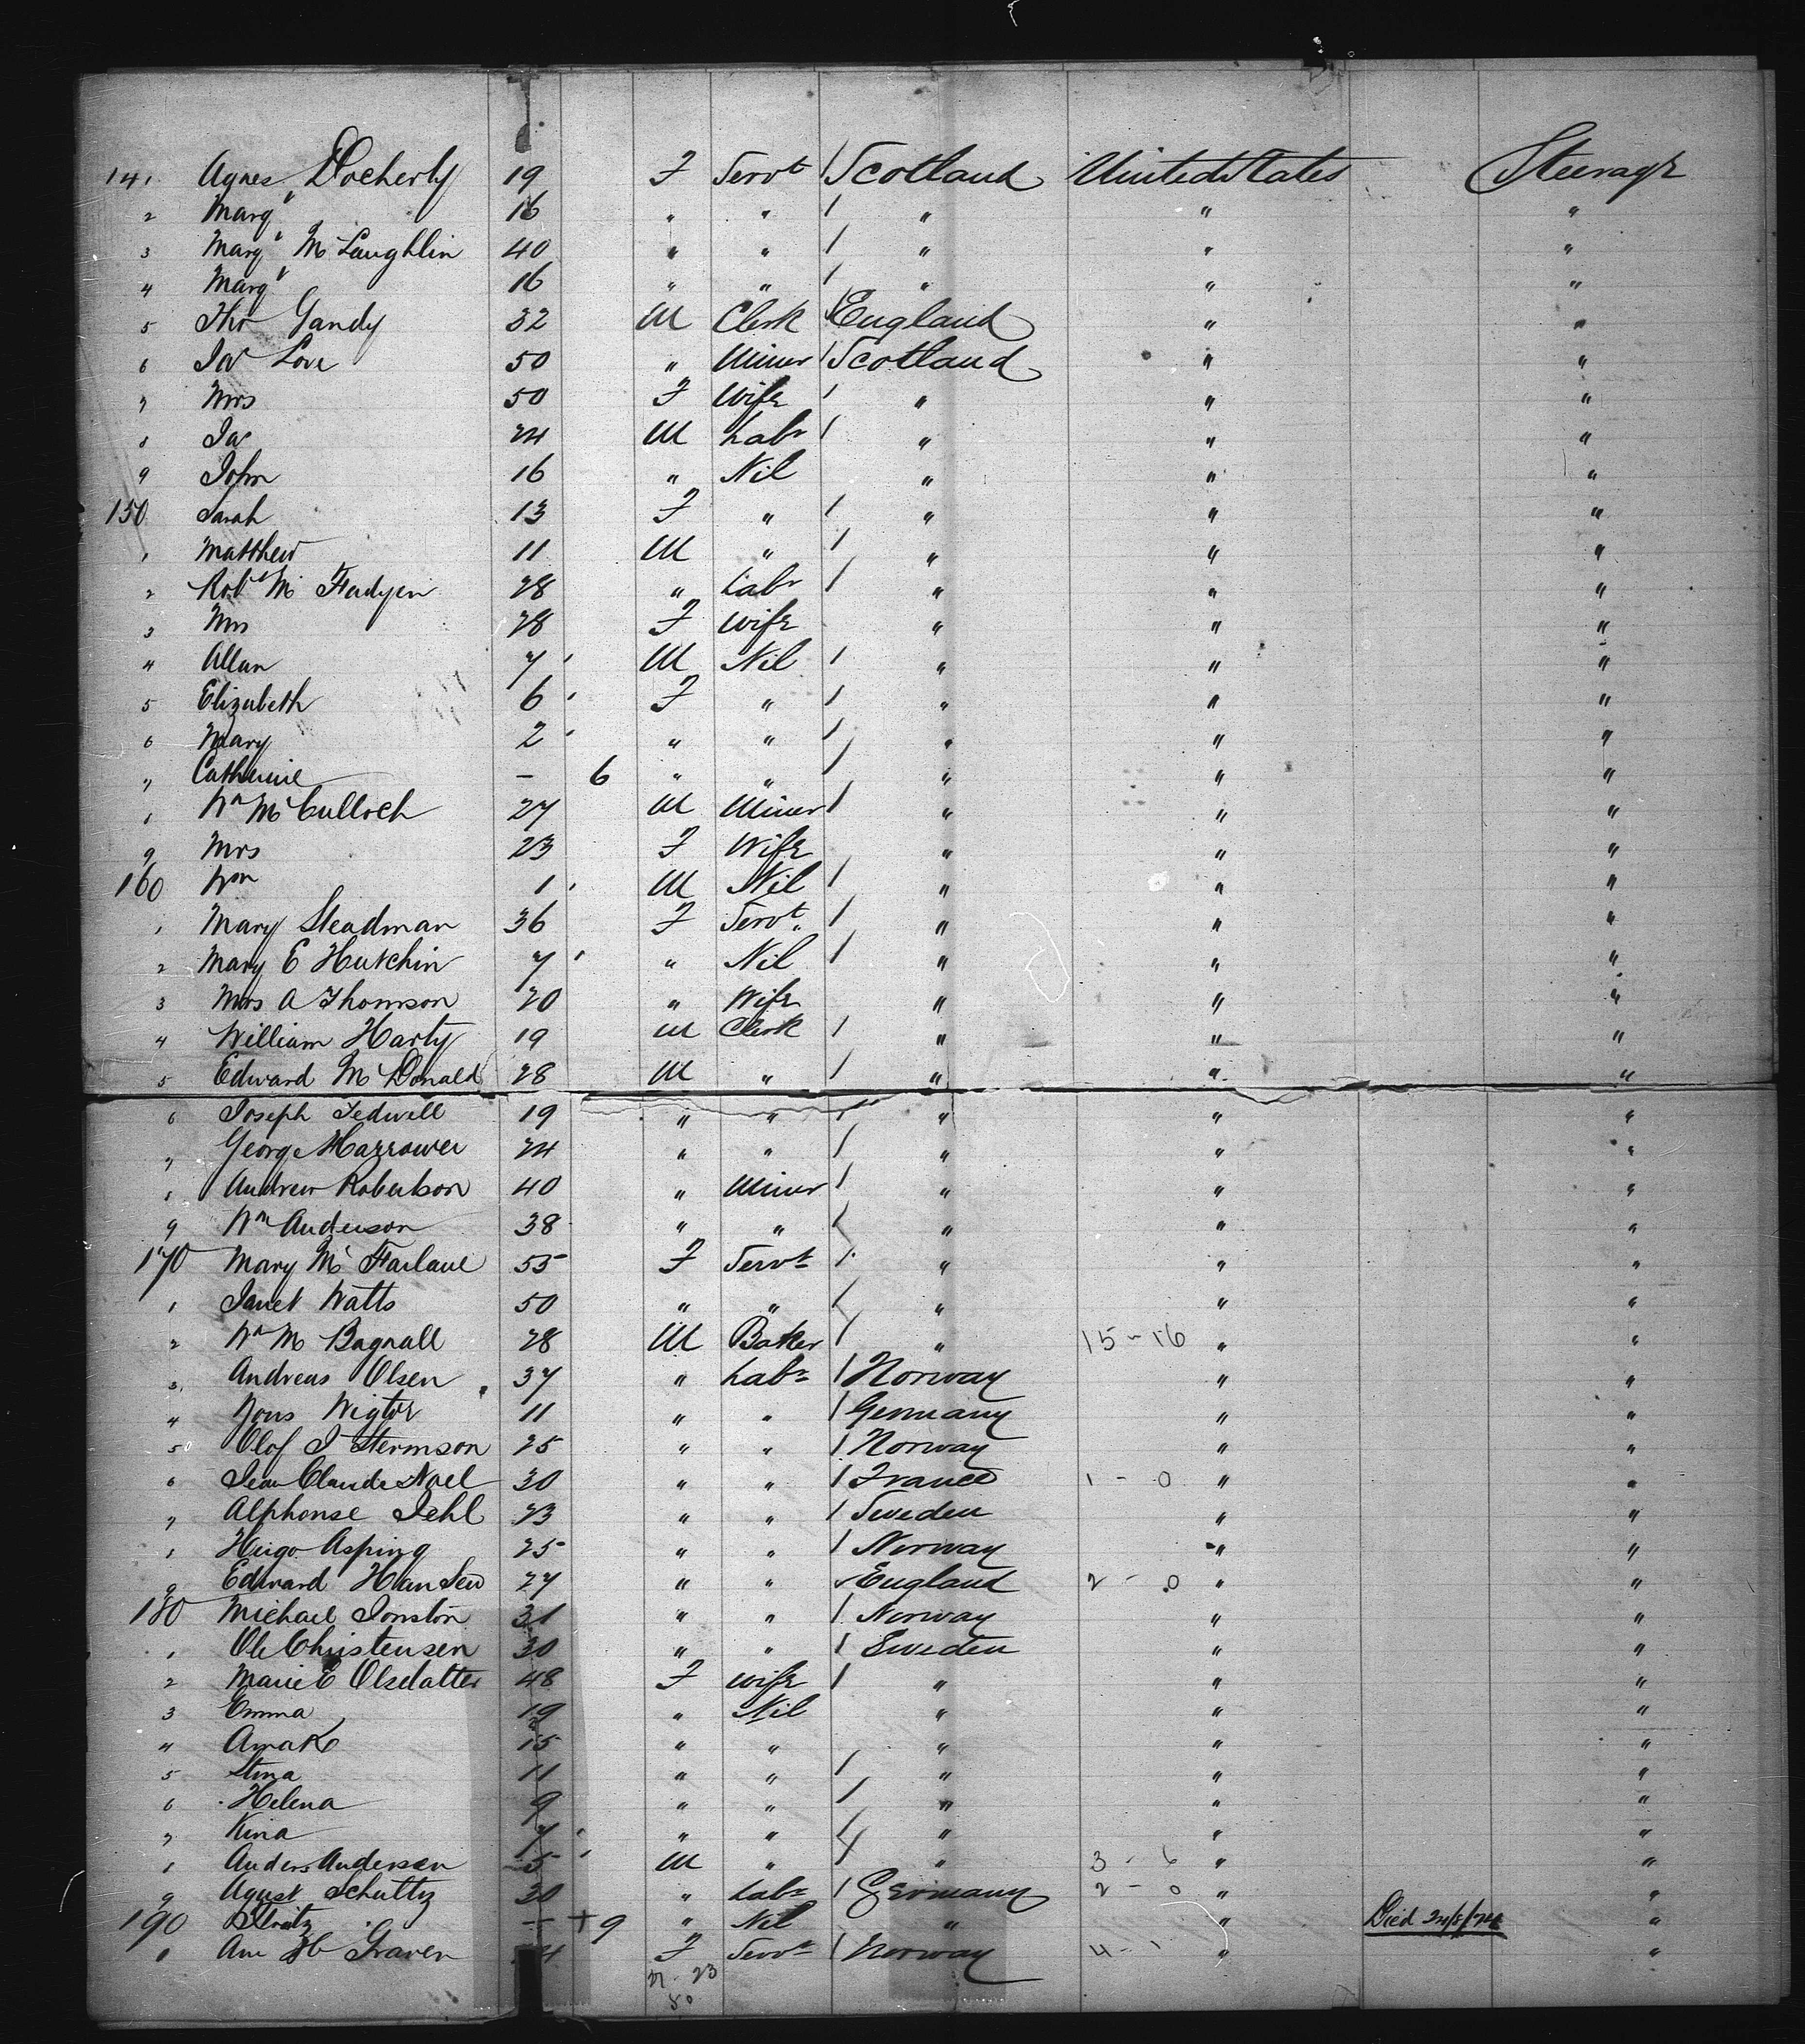 141 Agnes Docherty 19 F Servt 1 Scotland United States Steerage
2 Margt 16 " " 1 " " "
3 Margt McLaughlin 40 " " 1 " " "
4 Margt 16 " " 1 " " "
5 Thos Gandy 32 M Clerk 1 England " "
6 Jas Love 50 " Miner 1 Scotland " "
7 Mrs 50 F Wife 1 " " "
8 Jas 24 M Labr 1 " " "
9 John 16 " Nil " " "
150 Sarah 13 F " 1 " " "
1 Matthew 11 M " 1 " " "
2 Robt Mc Fadyen 28 " Labr 1 " " "
3 Mrs 28 F Wife " " "
4 Allan 7 M Nil 1 " " "
5 Elizabeth 6 F " 1 " " "
6 Mary 2 " " 1 " " "
7 Catherine - 6 " " 1 " " "
8 Wm McCulloch 27 M Miner 1 " " "
9 Mrs 23 F Wife " " "
160 Wm 1 M Nil 1 " " "
1 Mary Steadman 36 F Servt 1 " " "
2 Mary E Hutchin 7 " Nil 1 " " "
3 Mrs A Thomson 20 " Wife " " "
4 William Harty 19 M Clerk 1 " " "
5 Edward McDonald 28 M " 1 " " "
6 Joseph Tedwell 19 " " 1 " " "
7 George Harrower 24 " " 1 " " "
8 Andrew Robertson 40 " Miner 1 " " "
9 Wm Anderson 38 " " 1 " " "
170 Mary McFarlane 55 F Servt 1 " " "
1 Janet Watts 50 " " 1 " " "
2 Wm M Bagnall 28 M Baker 1 " 15-16 " "
3 Andreas Olsen 37 " Labr 1 Norway " "
4 11 " " 1 Germany " "
5 Olof J 25 " " 1 Norway " "
6 Jean Claude Noel 30 " " 1 France 1-0 " "
7 Alphonse Jehl 23 " " 1 Sweden " "
8 Hugo Asping 25 " " 1 Norway " "
9 Edward Hansen 27 " " England 2-0 " "
180 Michael Jonston 31 " " 1 Norway " "
1 Ole Christensen 30 " " 1 Sweden " "
2 Marie C Olsdatter 48 F Wife 1 " " "
3 Emma 19 " Nil " " "
4 15 " " " " "
5 Stina 11 " " 1 " " "
6 Helena 9 " " 1 " " "
7 Kina 7 " " 1 " " "
8 Anders Andersen 5 M " 1 " 3-6 " "
9 Agust Schultz 30 " Labr 1 Germany 2-0 " "
190 - + 9 " Nil " " Died "
1 Ane Graven F Servt 1 Norway 4-1 " "